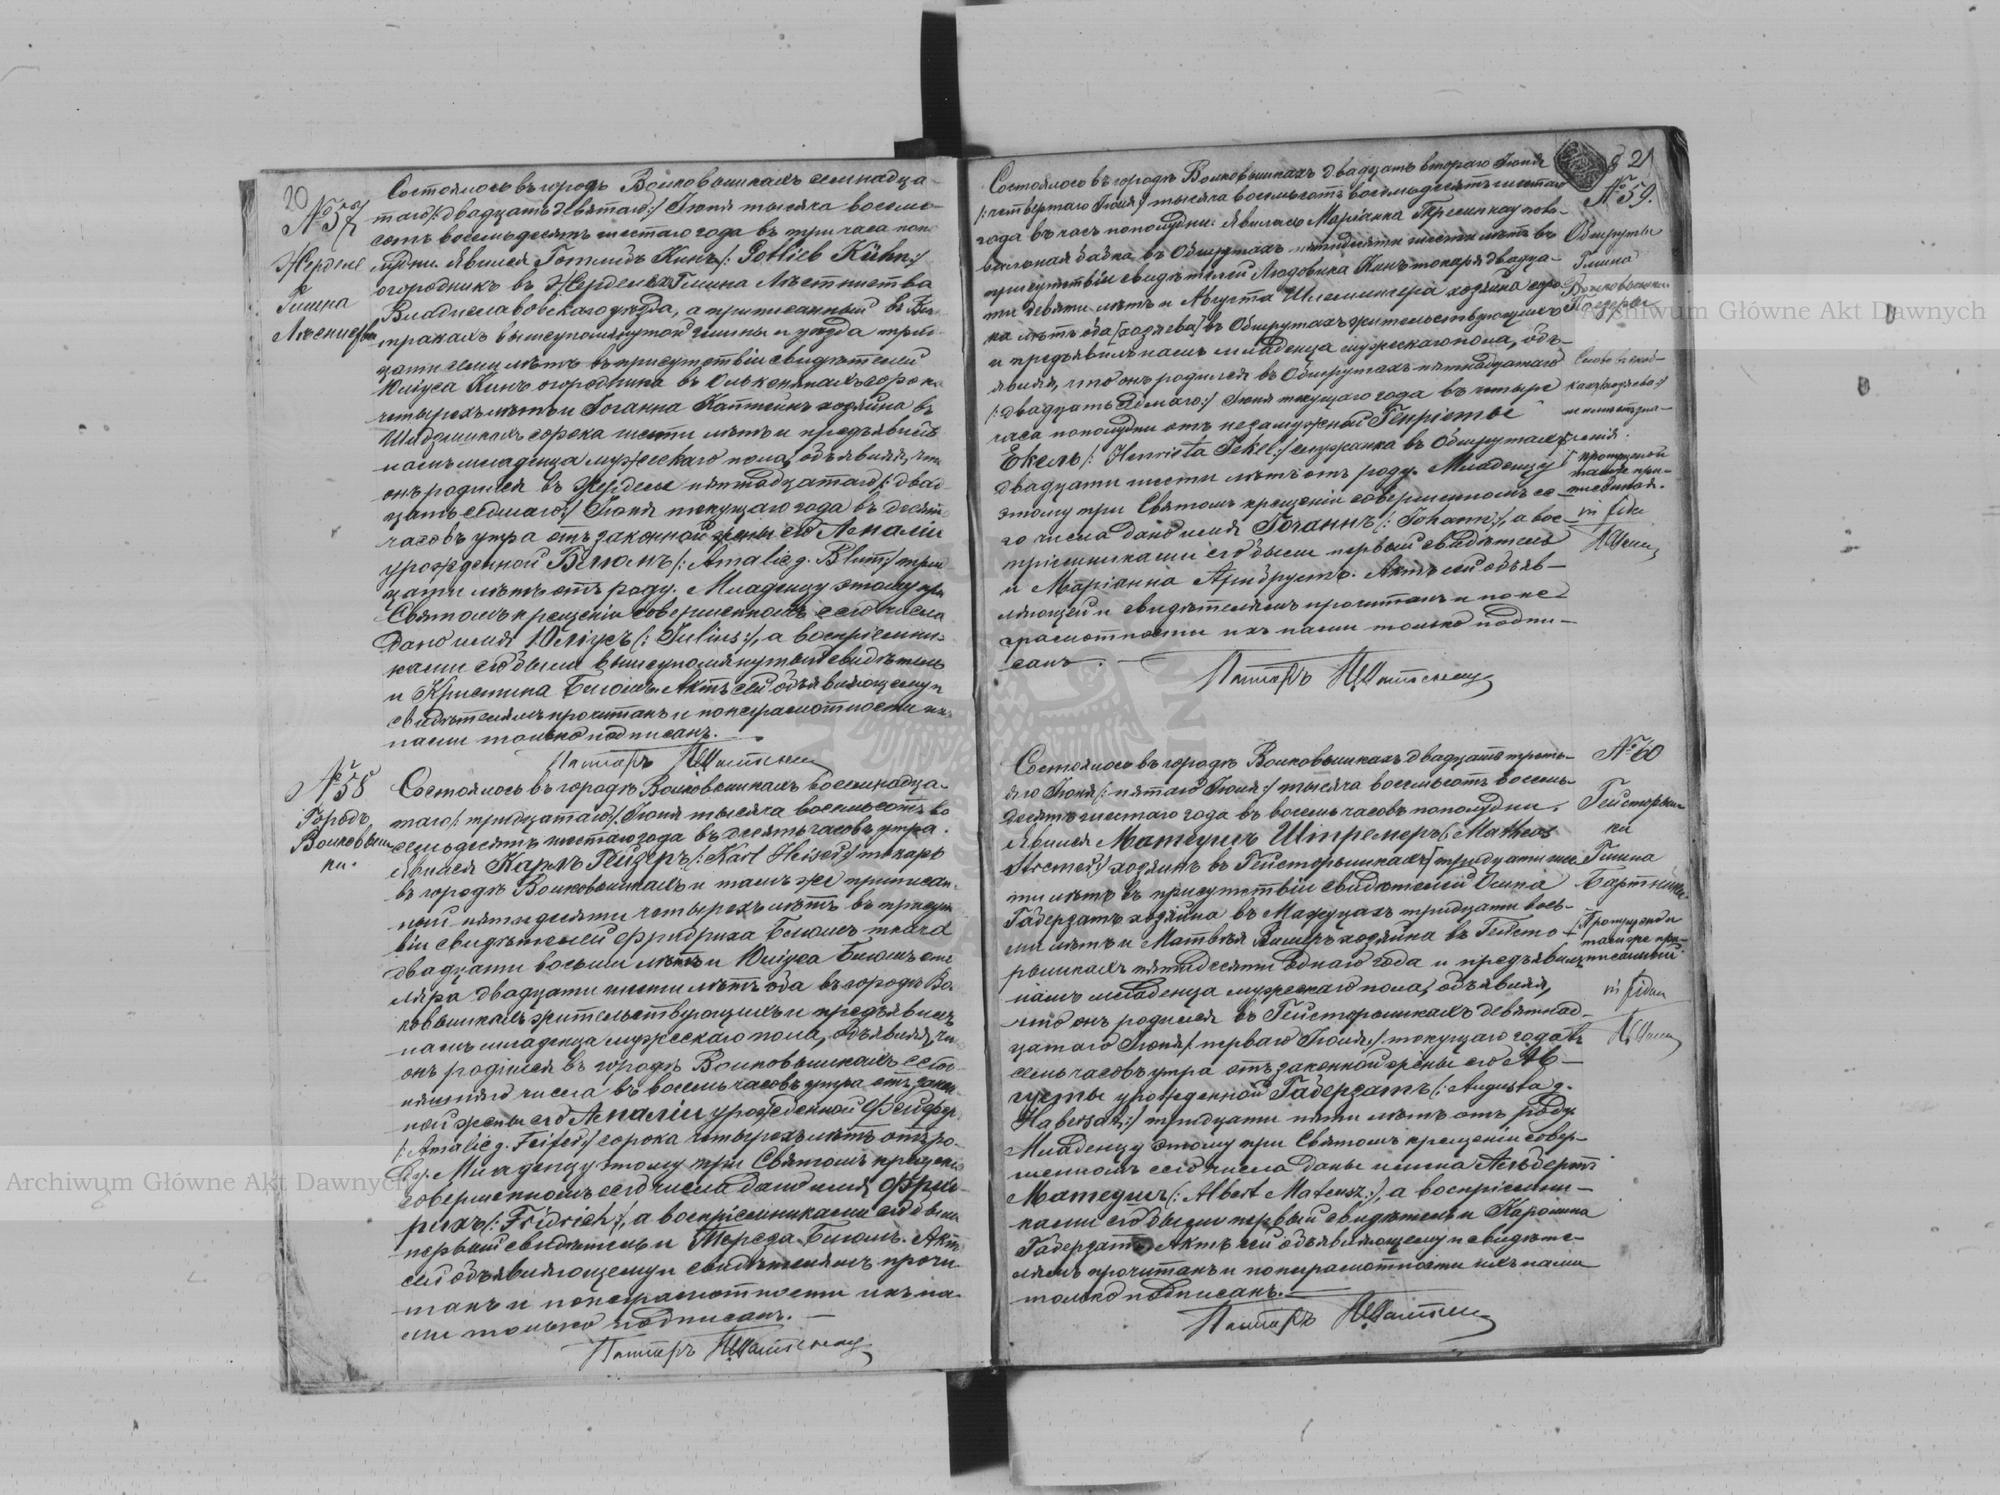 20
№ 57
Жердели
Гмина
Состоялось въ городѣ Волковышкахъ семнадца-
таго /: двадцать девятаго :/ Іюня тысяча восемь-
сотъ восемьдесятъ шестаго года въ три часа попо-
лудни. явился Готлибъ Кинъ /: Gotlieb Kühn :/
огородникъ въ Гмина
Владиславовскаго уѣзда, а приписанный въ
вышеупомянутой гмины и уѣзда трид-
цати семи лѣтъ въ присутствіи свидѣтелей
Юліуса Кинъ огородника въ сорока
четырехъ лѣтъ и Іоганна хозяина въ
сорока шести лѣтъ и предъявилъ
намъ младенца мужескаго пола, объявляя, что
онъ родился въ пятнадцатаго /: двад-
цать седьмаго :/ Іюня текущаго года въ десять
часовъ утра отъ законной жены его Амаліи
урожденной Блюмъ /: Amalie g. Blum :/ трид-
цати лѣтъ отъ роду. Младенцу этому при
Святомъ крещеніи совершенномъ сего числа
дано имя Юліусъ /: Julius :/, а воспріемни-
ками его были вышеупомянутый свидѣтель
и Кристина Блюмъ. Актъ сей объявляющему и
свидѣтелямъ прочитанъ и по неграмотности ихъ
нами только подписанъ.
Пасторъ
№ 58
Городъ
Волковыш-
ки.
Состоялось въ городѣ Волковышкахъ восемнадца-
таго /: тридцатаго :/ Іюня тысяча восемьсотъ во-
семьдесятъ шестаго года въ десять часовъ утра.
явился Карлъ Гейзеръ /: Karl Heiser :/ токарь
въ городѣ Волковышкахъ и тамъ же приписан-
ный пятидесяти четырехъ лѣтъ въ присутст-
віи свидѣтелей Фридриха Блюмъ ткача
двадцати восьми лѣтъ и Юліуса Блюмъ сто-
ляра двадцати шести лѣтъ оба въ городѣ Вол-
ковышкахъ жительствующихъ и предъявилъ
намъ младенца мужескаго пола, объявляя, что
онъ родился въ городѣ Волковышкахъ
числа въ восемь часовъ утра отъ закон-
ной жены его Амаліи урожденной Фейфер
/: Amalie g. Feifer :/ сорока четырехъ лѣтъ отъ ро-
ду. Младенцу этому при Святомъ крещеніи
совершенномъ сего числа дано имя Фрид-
рихъ /: Fridrich :/, а воспріемниками его были
первый свидѣтель и Тереза Блюмъ. Актъ
сей объявляющему и свидѣтелямъ прочи-
танъ и по неграмотности ихъ на-
ми только подписанъ. —
Пасторъ
21
№ 59.
Обшруты
Гмина
Состоялось въ городѣ Волковышкахъ двадцать втораго Іюня
/: четвертаго Іюля :/ тысяча восемьсотъ восемьдесятъ шестаго
года въ часъ пополудни. явилась Маріанна пови-
вальная бабка въ Обшрутахъ пятидесяти шести лѣтъ въ
присутствіи свидѣтелей Людовика Кинъ токаря двадца-
ти девяти лѣтъ и Августа Шлеммингера хозяина соро-
ка лѣтъ оба [хозяева] въ Обшрутахъ жительствующихъ
и предъявилъ намъ младенца мужескаго пола, объ-
являя, что онъ родился въ Обшрутахъ пятнадцатаго
/: двадцать седьмаго :/ Іюня текущаго года въ четыре
часа пополудни отъ незамужной Генріеты
Екель /: Henrieta Jekel :/ служанка въ Обшрутахъ
двадцати шести лѣтъ отъ роду. Младенцу
этому при Святомъ крещеніи совершенномъ се-
го числа дано имя Іоганнъ /: Johann :/, а вос-
пріемниками его были первый свидѣтель
и Маріанна Армбрустъ. Актъ сей объяв-
ляющей и свидѣтелямъ прочитанъ и по не-
грамотности ихъ нами только подпи-
санъ. —
Пасторъ
пропущенной
также при-
in fidem
№ 60
Гмина
Состоялось въ городѣ Волковышкахъ двадцать треть-
яго Іюня /: пятаго Іюля :/ тысяча восемьсотъ восемь-
десятъ шестаго года въ восемь часовъ пополудни.
явился Матеушъ Штремеръ /: Matheus
Stremer :/ хозяинъ въ Гейсторышкахъ тридцати шес-
ти лѣтъ въ присутствіи свидѣтелей Осипа
Габерзатъ хозяина въ тридцати вось-
ми лѣтъ и Матвѣя хозяина въ Гейсто-
рышкахъ пятидесяти однаго года и предъявилъ
намъ младенца мужескаго пола, объявляя,
что онъ родился въ Гейсторышкахъ девятнад-
цатаго Іюня /: перваго Іюля :/ текущаго года въ
семь часовъ утра отъ законной жены его Ав-
густы урожденной Габерзатъ /: Augusta g.
Habersat :/ тридцати пяти лѣтъ отъ роду.
Младенцу этому при Святомъ крещеніи совер-
шенномъ сего числа даны имена Альбертъ
Матеушъ /: Albert Mateusz :/, а воспріемни-
ками его были первый свидѣтель и Каролина
Габерзатъ. Актъ сей объявляющему и свидѣте-
лямъ прочитанъ и по неграмотности ихъ нами
только подписанъ. —
Пасторъ
in fidem
Archiwum Główne Akt Dawnych
Archiwum Główne Akt Dawnych